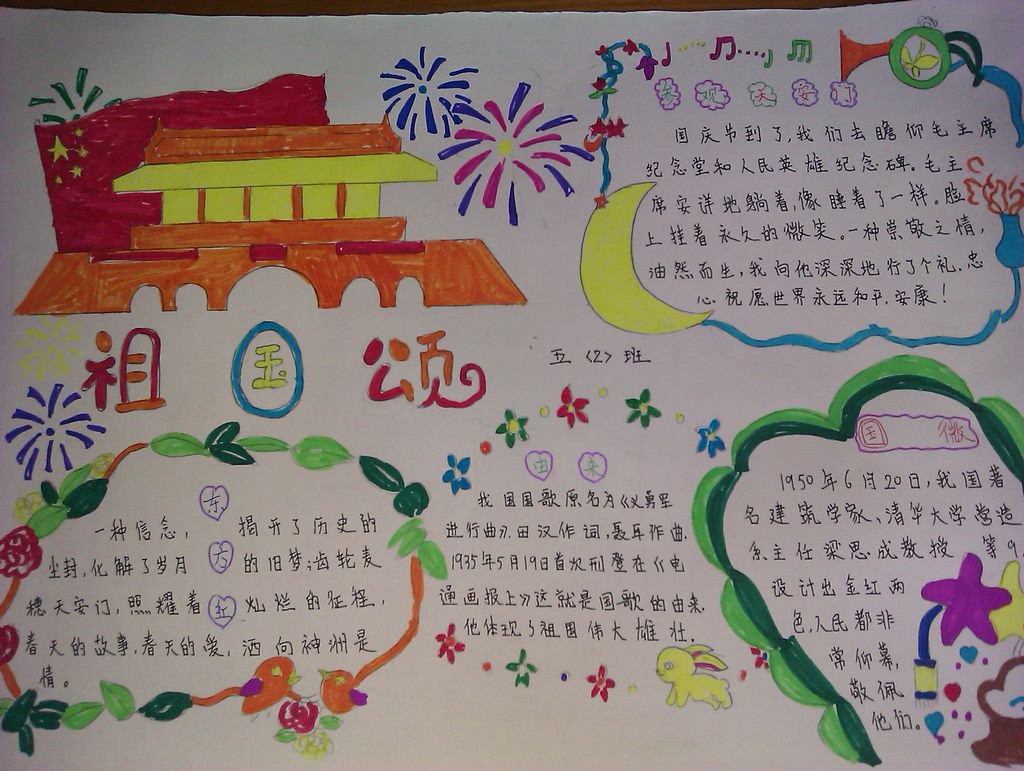 参观天安门
国庆节到了,我们去瞻仰毛主席
纪念堂和人民英雄纪念碑。毛主
席安详地躺着,像睡着了一样。脸
上挂着永久的微笑。一种崇敬之情,
油然而生,我向他深深地行了个礼.忠
心祝愿世界永远和平,安康!
祖国颂
五〈2〉班
东方红
一种信念, 揭开了历史的
尘封,化解了岁月 的旧梦;齿轮麦
穗天安门,照耀着 灿烂的征程,
春天的故事,春天的爱,洒向神洲是
情。
由来
我国国歌原名为《义勇军
进行曲》,田汉作词,聂耳作曲.
1935年5月19日首次刑登在《电
通画报上》这就是国歌的由来.
他体现了祖国伟大雄壮.
国 微
1950年6月20日,我国著
名建筑学家、清华大学营造
系主任梁思成教授 等9
设计出金红两
色,人民都非
常仰幕,
敬佩
他们。